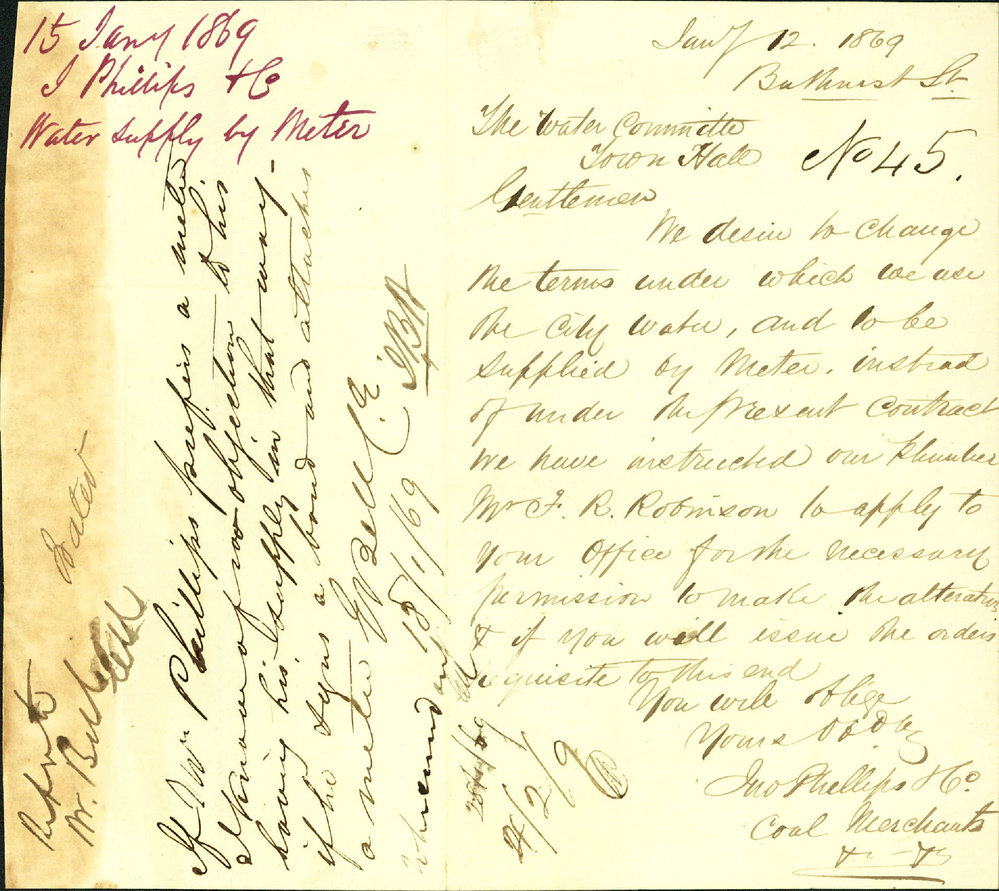 15 Jany 1869
J Phillips & Co
Water supply by Meter
Jany 12. 1869
Bathurst St.
The Water Committe
Town Hall
No 45.
Gentlemen
We desire to change
the terms under which we use
the City Water, and to be
supplied by Meter. instead
of under the present Contract
We have instructed our Plumber
Mr F. R. Robinson to apply to
your Office for the necessary
permission to make the alteration
& if you will issue the orders
requisite to this end
You will oblige
Yours
Jno Phillips & Co.
Coal Merchants
If Mr Phillips prefers a meter
I know of no objection to his
having his supply in that way-
if he signs a bond and attaches
a meter
Bell C.E.
18/1/69
Refer to
Mr. Bell
Water
4/2/9